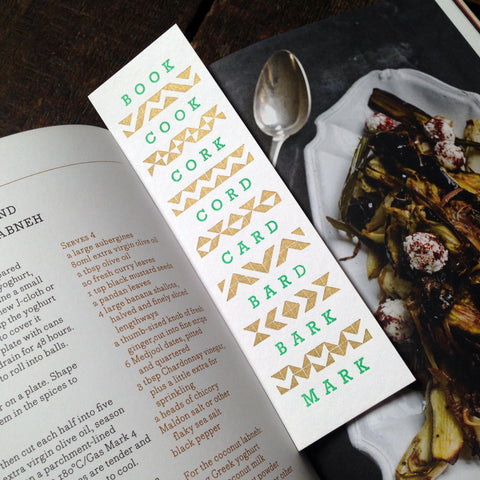 BOOK
COOK
CORK
CORD
CARD
BARD
BARK
MARK
ND
ABNEH
pared
yoghurt,
ne a small
ew J-cloth or
p the yoghurt
to cover it.
plate with cans
drain for 48 hours.
to roll into balls.
r on a plate. Shape
in the spices to
then cut each half into five
extra virgin olive oil, season
on a parchment-lined
180°C/Gas Mark 4
ey are tender and
to cool.
SERVES 4
2 large aubergines
80ml extra virgin olive oil
2 tbsp olive oil
20 fresh curry leaves
1 tsp black mustard seeds
2 pandan leaves
4 large banana shallots,
halved and finely sliced
lengthways
a thumb-sized knob of fresh
ginger, cut into fine
6 Medjool dates, pitted
and quartered
3 tbsp Chardonnay vinegar,
plus a little extra for
sprinkling
2 heads of chicory
Maldon salt or other
flaky sea salt
black pepper
For the coconut labneh:
Greek yoghurt
coconut milk